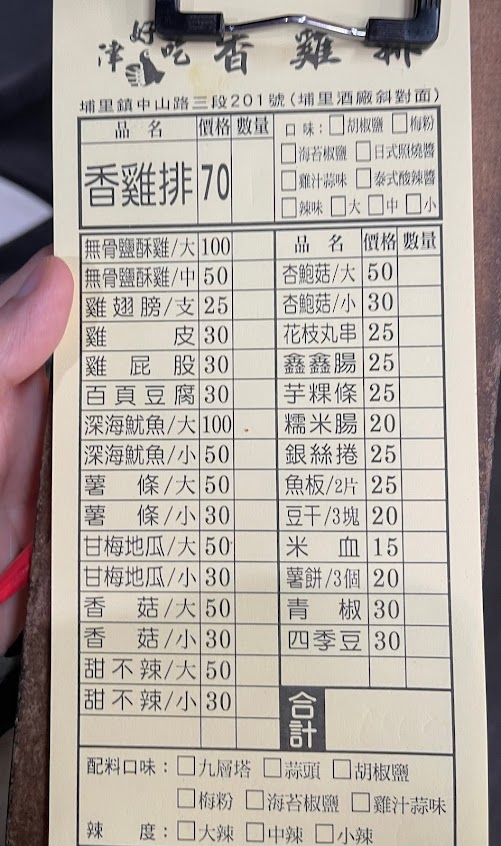 津好吃香雞排
埔里鎮中山路三段201號(埔里酒廠斜對面)
品名 價格 數量
香雞排 70
口味：□胡椒鹽 □梅粉
□海苔椒鹽 □日式照燒醬
□雞汁蒜味 □泰式酸辣醬
□辣味 □大 □中 □小
無骨鹽酥雞/大 100
無骨鹽酥雞/中 50
雞翅膀/支 25
雞皮 30
雞屁股 30
百頁豆腐 30
深海魷魚/大 100
深海魷魚/小 50
薯條/大 50
薯條/小 30
甘梅地瓜/大 50
甘梅地瓜/小 30
香菇/大 50
香菇/小 30
甜不辣/大 50
甜不辣/小 30
品名 價格 數量
杏鮑菇/大 50
杏鮑菇/小 30
花枝丸串 25
鑫鑫腸 25
芋粿條 25
糯米腸 20
銀絲捲 25
魚板/2片 25
豆干/3塊 20
米血 15
薯餅/3個 20
青椒 30
四季豆 30
合計
配料口味：□九層塔 □蒜頭 □胡椒鹽
□梅粉 □海苔椒鹽 □雞汁蒜味
辣度：□大辣 □中辣 □小辣